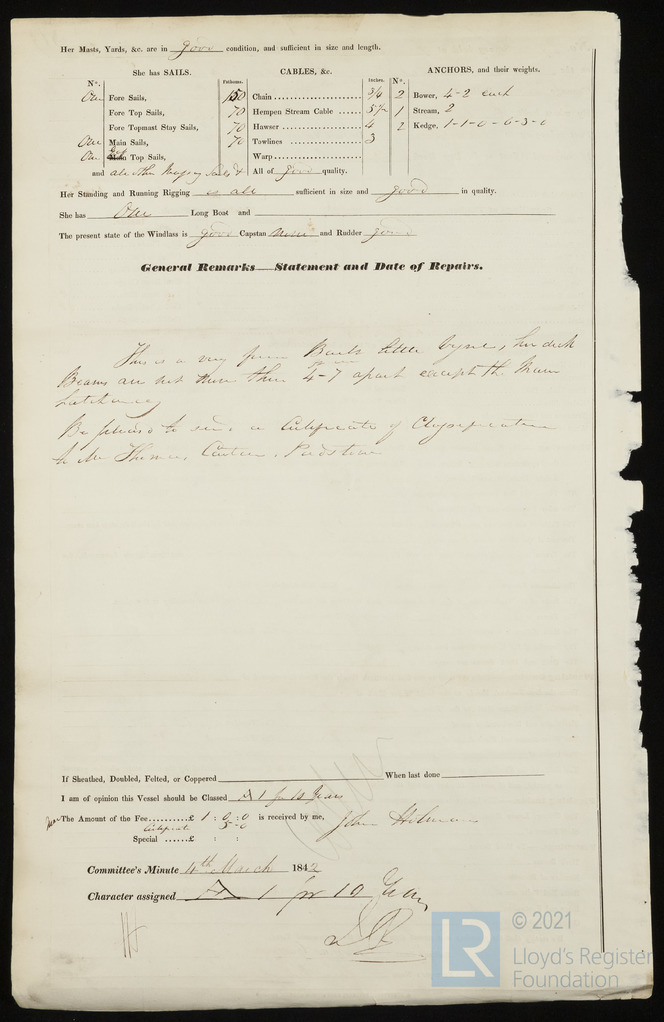 Her Masts, Yards, &c. are in good condition, and sufficient in size and length.
She has SAILS.
CABLES, &c.
ANCHORS, and their weights.
N°.
Fathoms.
Inches.
N°.
One Fore Sails,
150
Chain
3/4
2 Bower, 4-2 each
Fore Top Sails,
70
Hempen Stream Cable
5 1/2
1 Stream, 2
Fore Topmast Stay Sails,
70
Hawser
4
2 Kedge, 1-1-0-0-3-0
One Main Sails,
70
Towlines
3
One Top Sails,
Warp
and all other Sails
All of good quality.
Her Standing and Running Rigging is all sufficient in size and good in quality.
She has One Long Boat and
The present state of the Windlass is good Capstan none and Rudder good
General Remarks—Statement and Date of Repairs.
This is a very fine little her deck
Beams are not more than 4-7 apart except the Main
Hatchway
Be pleased to send a Certificate of Classification
to Mr Thomas Padstow
If Sheathed, Doubled, Felted, or Coppered When last done
I am of opinion this Vessel should be Classed A 1 for 10 Years
The Amount of the Fee £ 1 : 0 : 0 is received by me,
Certificate 5-0
John
Special £ : :
Committee's Minute 4th March 1842
Character assigned A 1 for 10 Years
© 2021
LR
Lloyd's Register
Foundation